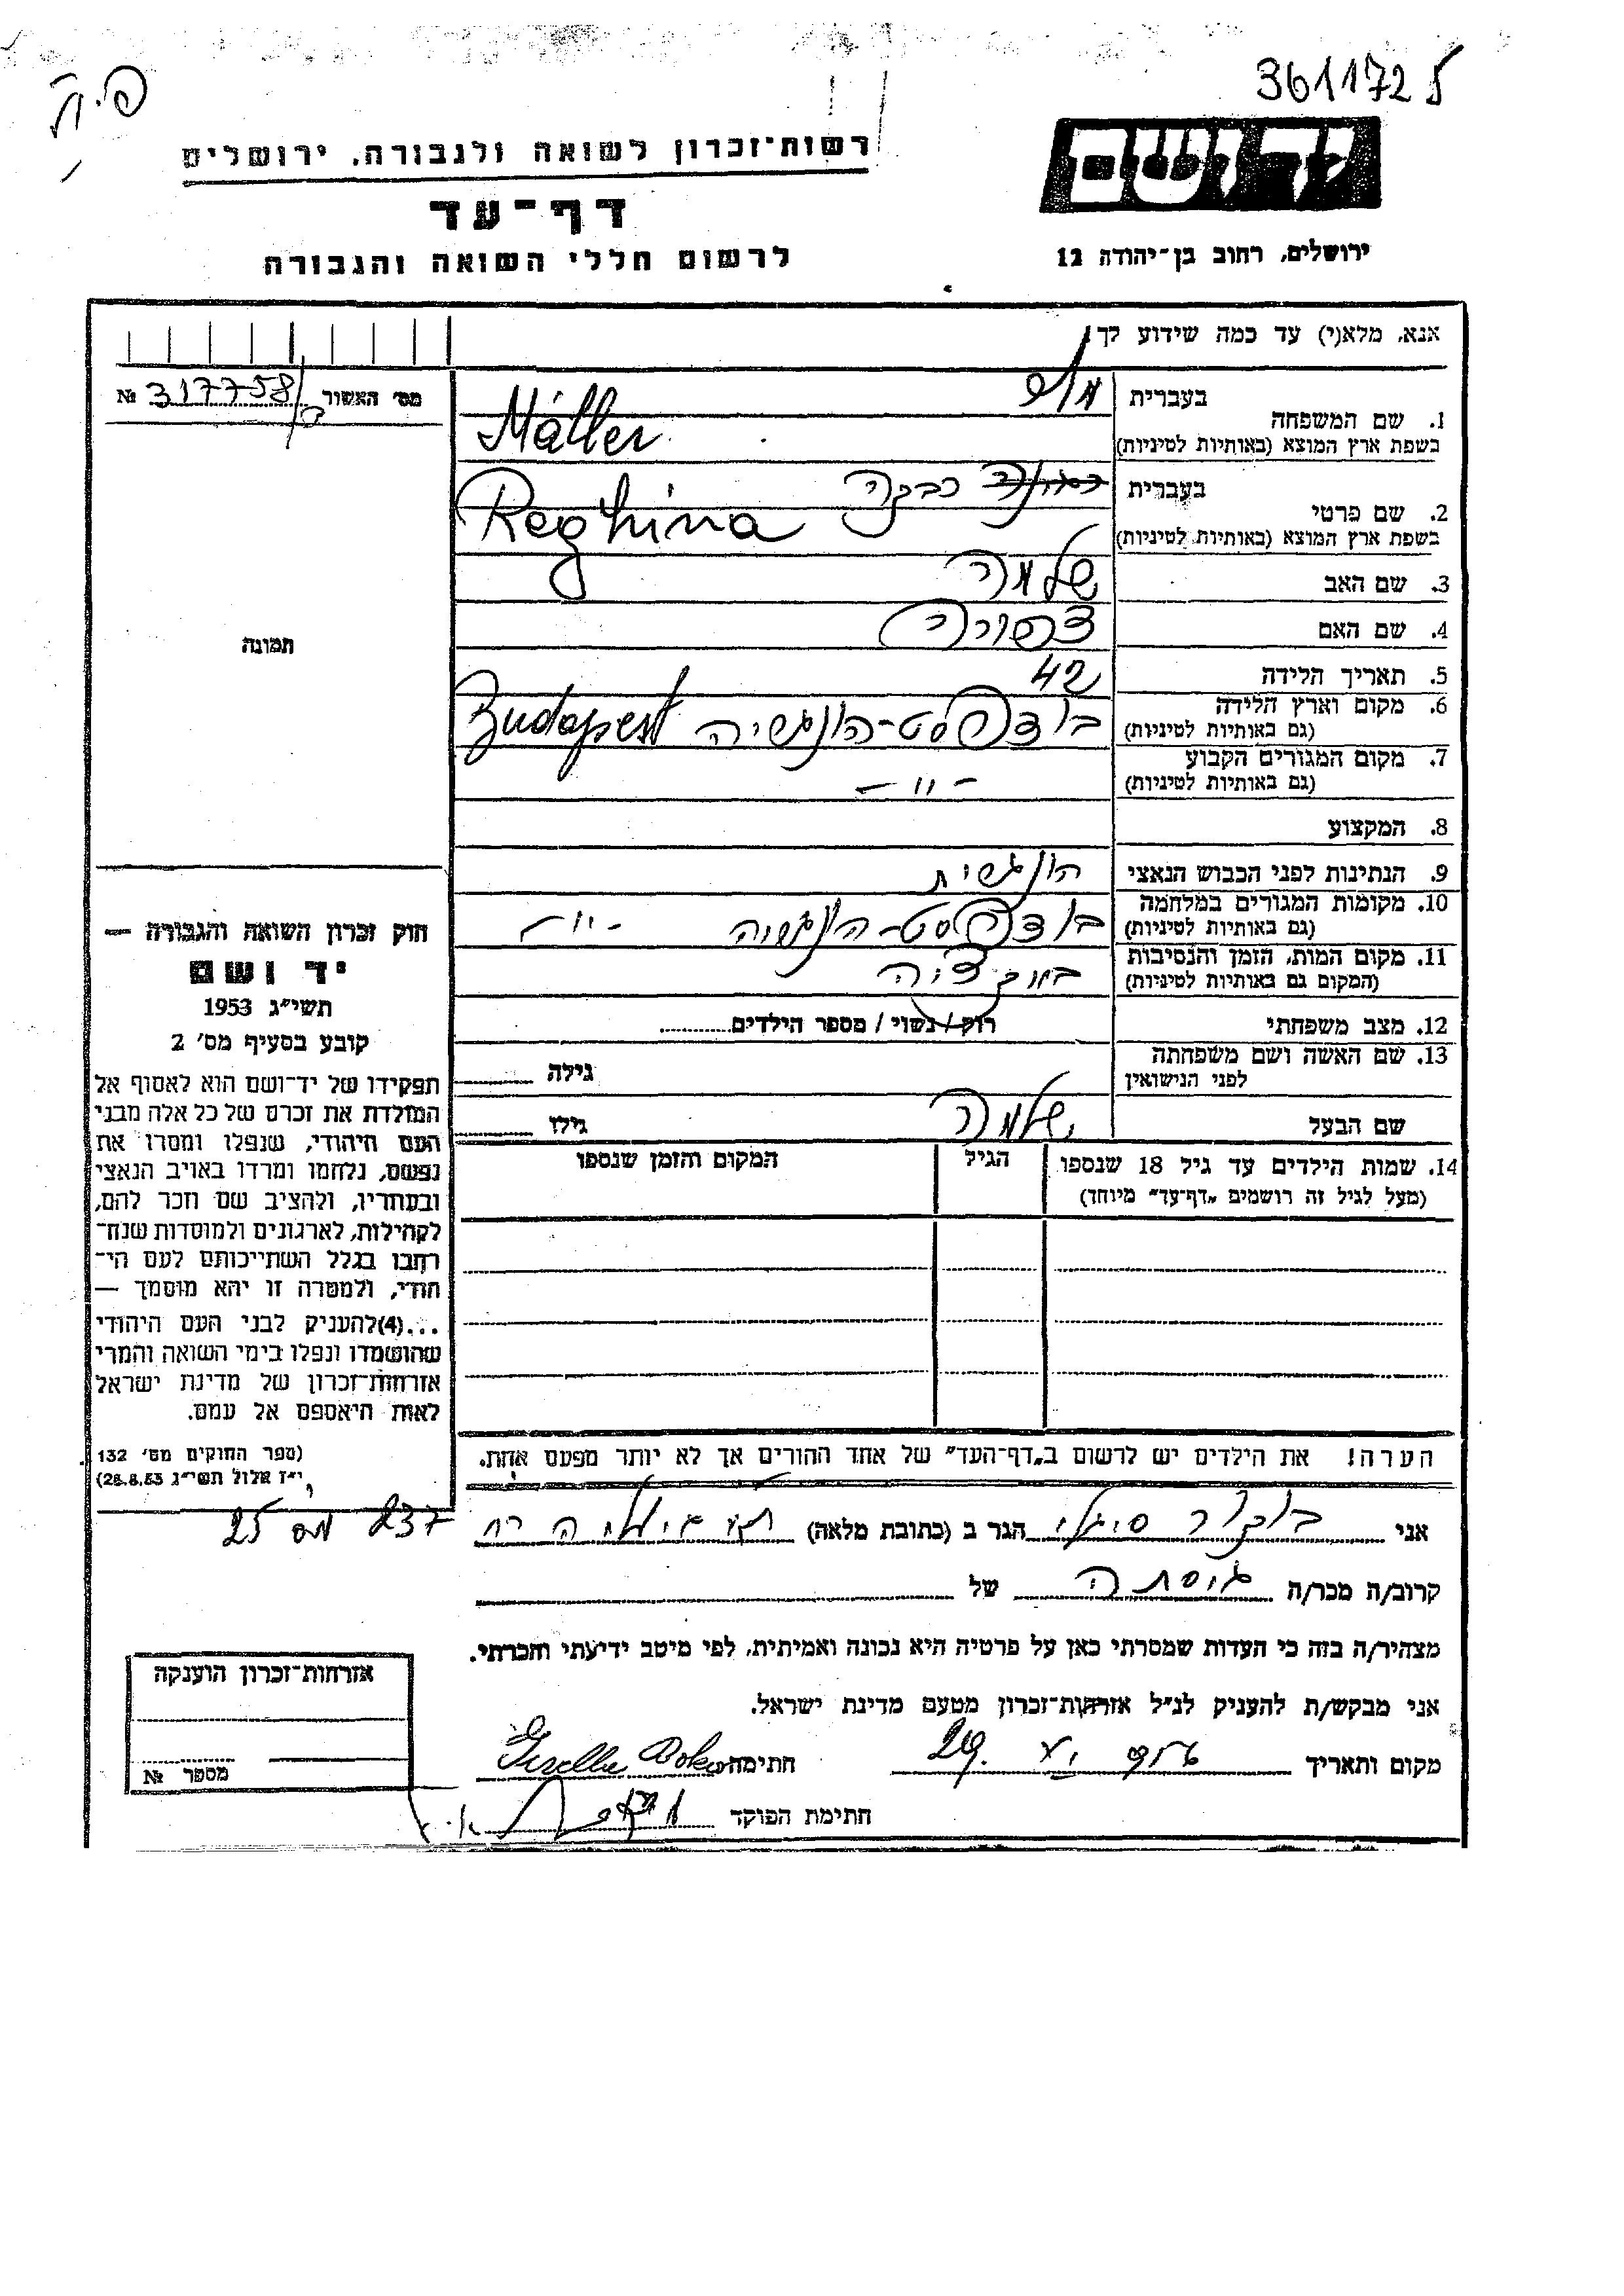 3611725
יד ושם
ירושלים, רחוב בן־יהודה 12
רשות־זכרון לשואה ולגבורה, ירושלים
דף־עד
לרשום חללי השואה והגבורה
אנא, מלא(י) עד כמה שידוע לך!
מס׳ האשור № 317758
1. שם המשפחה
בעברית
בשפת ארץ המוצא (באותיות לטיניות) Máller
2. שם פרטי
בעברית רבקה
בשפת ארץ המוצא (באותיות לטיניות) Reghina
3. שם האב שלמה
4. שם האם צפורה
5. תאריך הלידה 42
6. מקום וארץ הלידה בודפסט-הונגריה Budapest
(גם באותיות לטיניות)
7. מקום המגורים הקבוע
(גם באותיות לטיניות) -"-
8. המקצוע
9. הנתינות לפני הכבוש הנאצי הונגרית
10. מקומות המגורים במלחמה בודפסט-הונגריה -"-
(גם באותיות לטיניות)
11. מקום המות, הזמן והנסיבות
(המקום גם באותיות לטיניות)
12. מצב משפחתי רוק / נשוי / מספר הילדים
13. שם האשה ושם משפחתה גילה
לפני הנישואין
שם הבעל שלמה גילו
14. שמות הילדים עד גיל 18 שנספו הגיל המקום והזמן שנספו
(מעל לגיל זה רושמים „דף־עד" מיוחד)
תמונה
חוק זכרון השואה והגבורה —
יד ושם
תשי״ג 1953
קובע בסעיף מס׳ 2
תפקידו של יד־ושם הוא לאסוף אל
המולדת את זכרם של כל אלה מבני
העם היהודי, שנפלו ומסרו את
נפשם, נלחמו ומרדו באויב הנאצי
ובעוזריו, ולהציב שם וזכר להם,
לקהילות, לארגונים ולמוסדות שנח־
רבו בגלל השתייכותם לעם הי־
הודי, ולמטרה זו יהא מוסמך —
...(4) להעניק לבני העם היהודי
שהושמדו ונפלו בימי השואה והמרי
אזרחות־זכרון של מדינת ישראל
לאות היאספם אל עמם.
(ספר החוקים מס׳ 132
י״ז אלול תשי״ג 28.8.53)
הערה! את הילדים יש לרשום ב„דף־העד" של אחד ההורים אך לא יותר מפעם אחת.
אני הגר ב (כתובת מלאה) 237 מס 25
קרוב/ה מכר/ה גיסתה של
מצהיר/ה בזה כי העדות שמסרתי כאן על פרטיה היא נכונה ואמיתית, לפי מיטב ידיעתי והכרתי.
אני מבקש/ת להעניק לנ״ל אזרחות־זכרון מטעם מדינת ישראל.
מקום ותאריך חתימה
חתימת הפוקד
אזרחות־זכרון הוענקה
מספר №